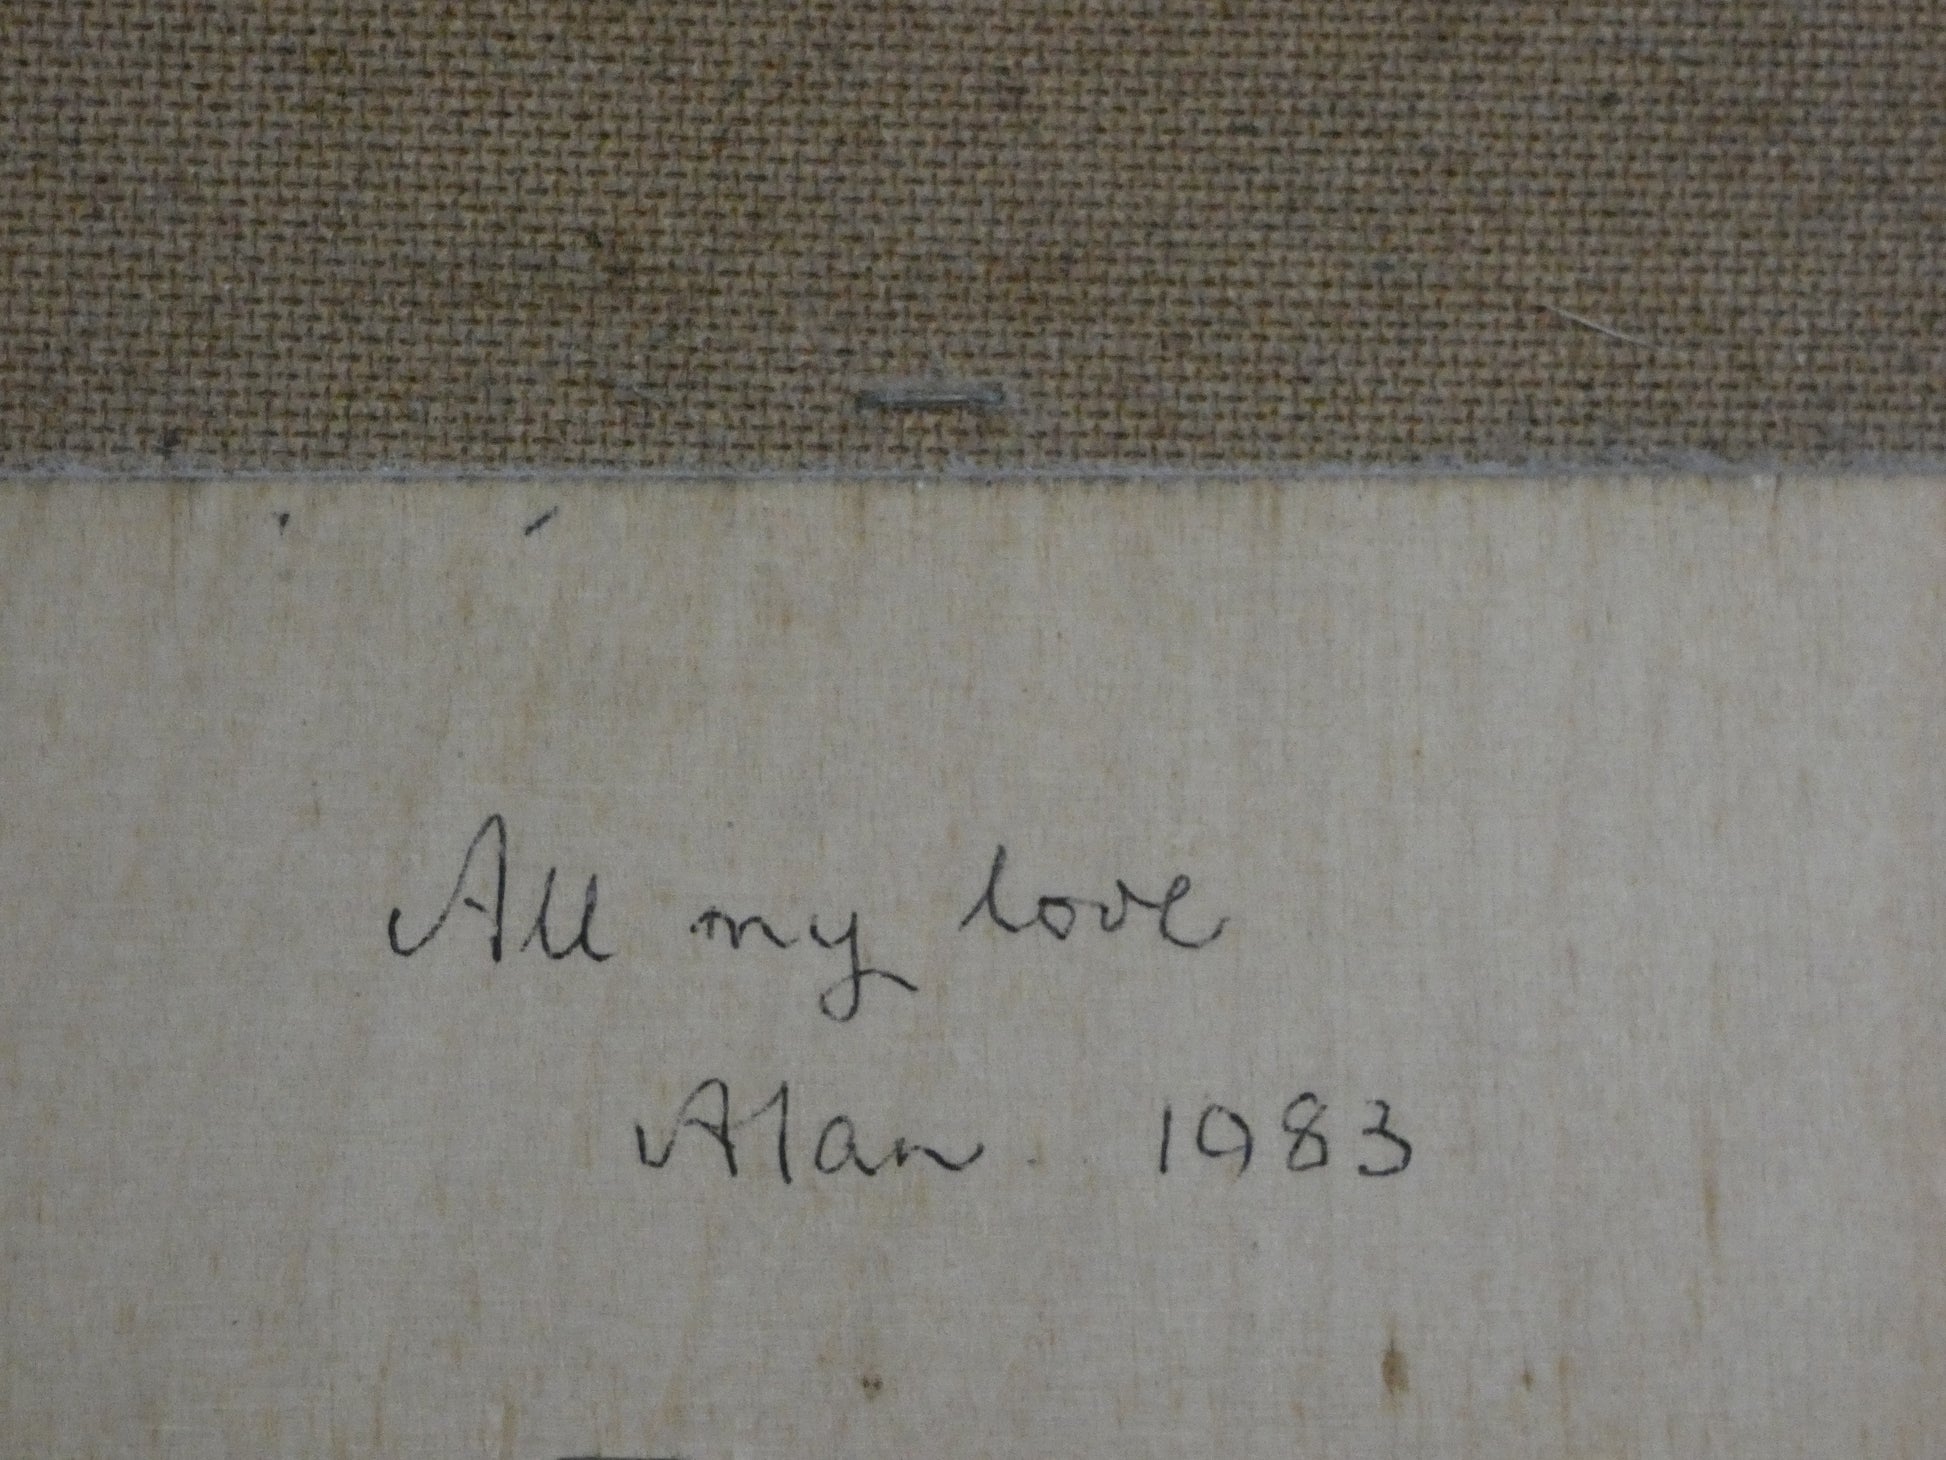 All my love
Alan 1983